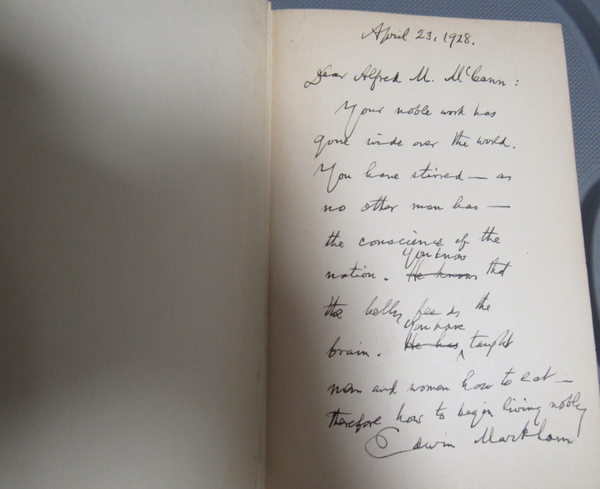 April 23, 1928.
Dear Alfred M. McCann:
Your noble work has
gone wide over the world.
You have stirred — as
no other man has —
the conscience of the
You know
nation. He knows that
the belly feeds the
You have
brain. He has ^ taught
men and women how to eat —
therefore how to begin living nobly
Edwin Markham